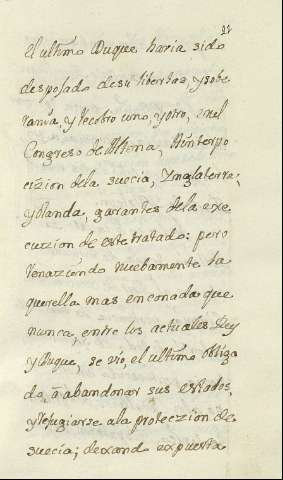 el ultimo Duque havia sido
despojado de su libertad, y sobe
rania, y recobro uno, y otro, en el
Congreso de Altena, â interpo
cizion de la suecia, Ynglaterra,
y olanda, garantes de la exe
cuzion de este tratado: pero
renaziendo nuebamente la
querella mas enconada que
nunca, entre los actuales Rey
y Duque, se vio, el ultimo obliga
do, â abandonar sus estados,
y refugiarse a la proteczion de
suecia; dexando expuesta